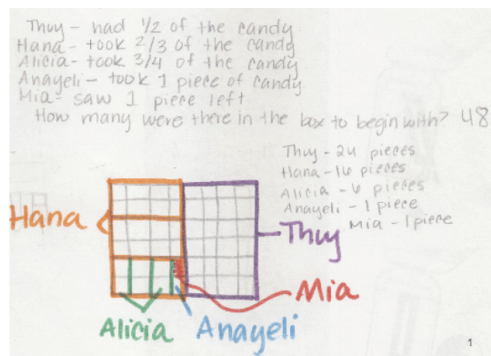 Thuy - had 1/2 of the candy
Hana - took 2/3 of the candy
Alicia - took 3/4 of the candy
Anayeli - took 1 piece of candy
Mia - saw 1 piece left
How many were there in the box to begin with? 48
Thuy - 24 pieces
Hana - 16 pieces
Alicia - 6 pieces
Anayeli - 1 piece
Mia - 1 piece
Hana
Thuy
Mia
Alicia
Anayeli
1